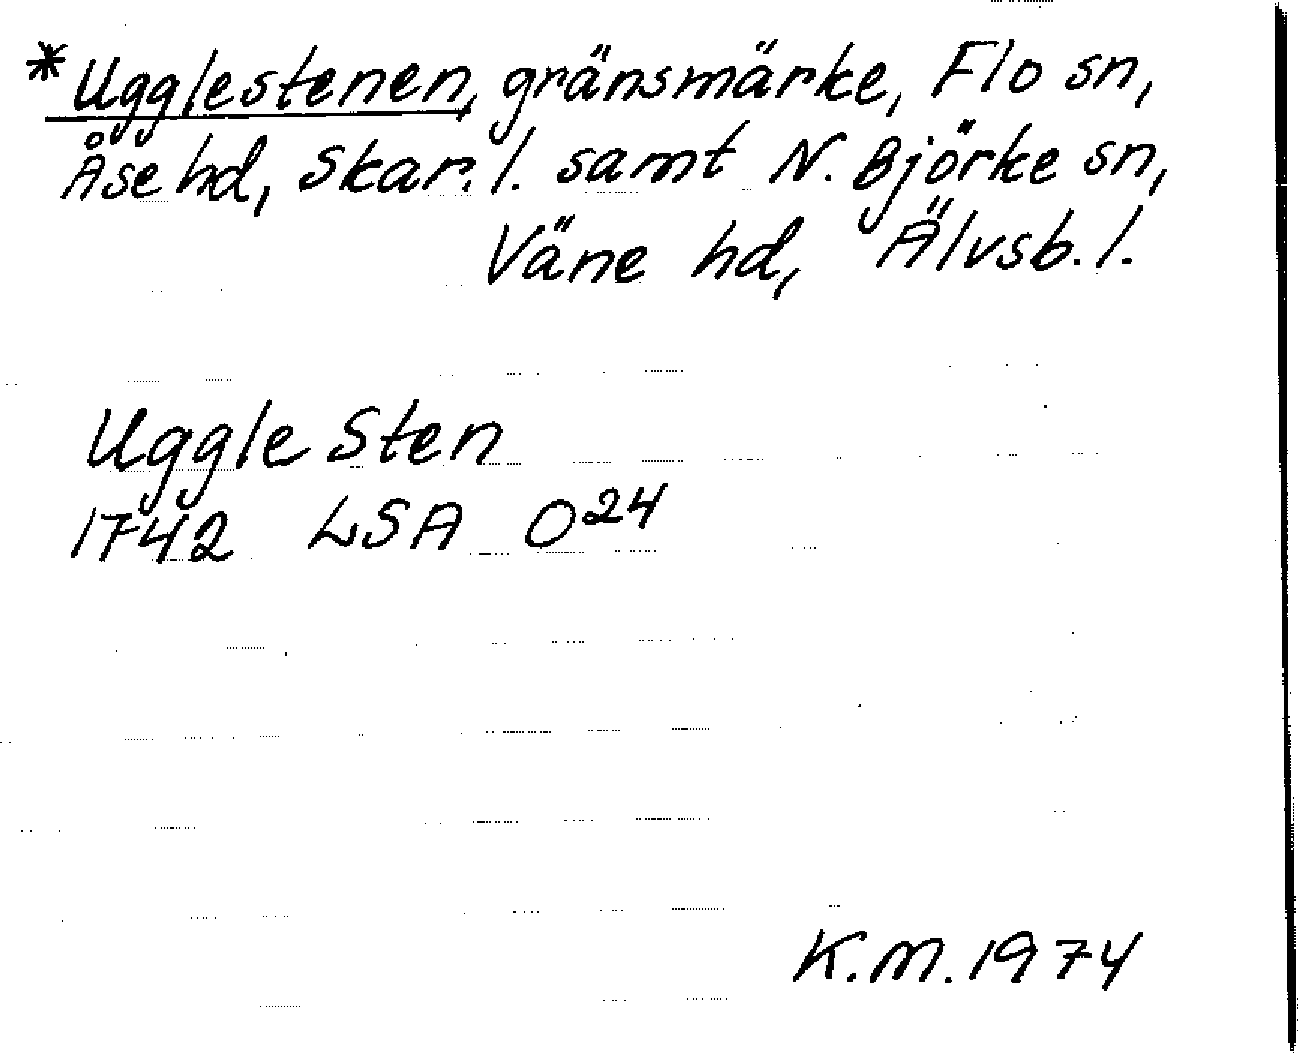 *Ugglestenen, gränsmärke, Flo sn,
Åse hd, Skar. l. samt N. Björke sn,
Väne hd, Älvsb. l.
Uggle Sten
1742 LSA O24
K.M. 1974